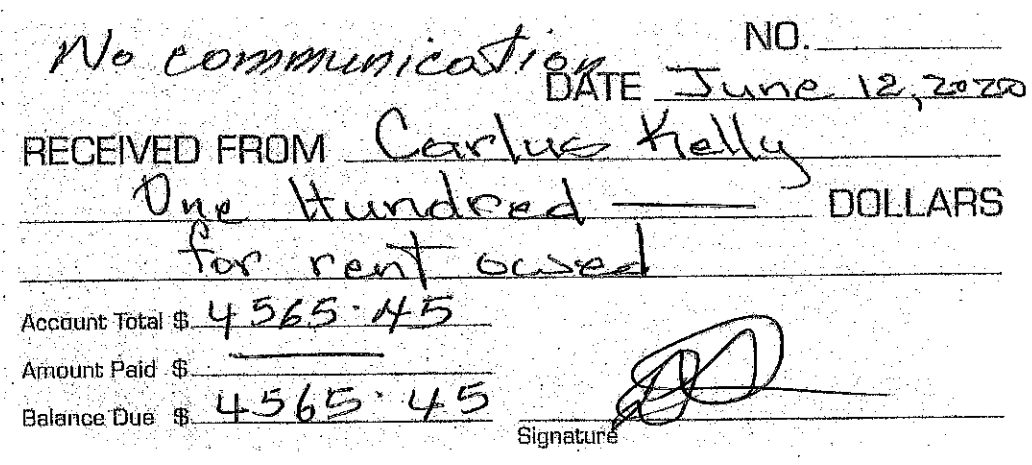 No communication
NO.
DATE June 12, 2020
RECEIVED FROM Carlus Kelly
One Hundred — DOLLARS
for rent owed
Account Total $ 4565.45
Amount Paid $ —
Balance Due $ 4565.45
Signature